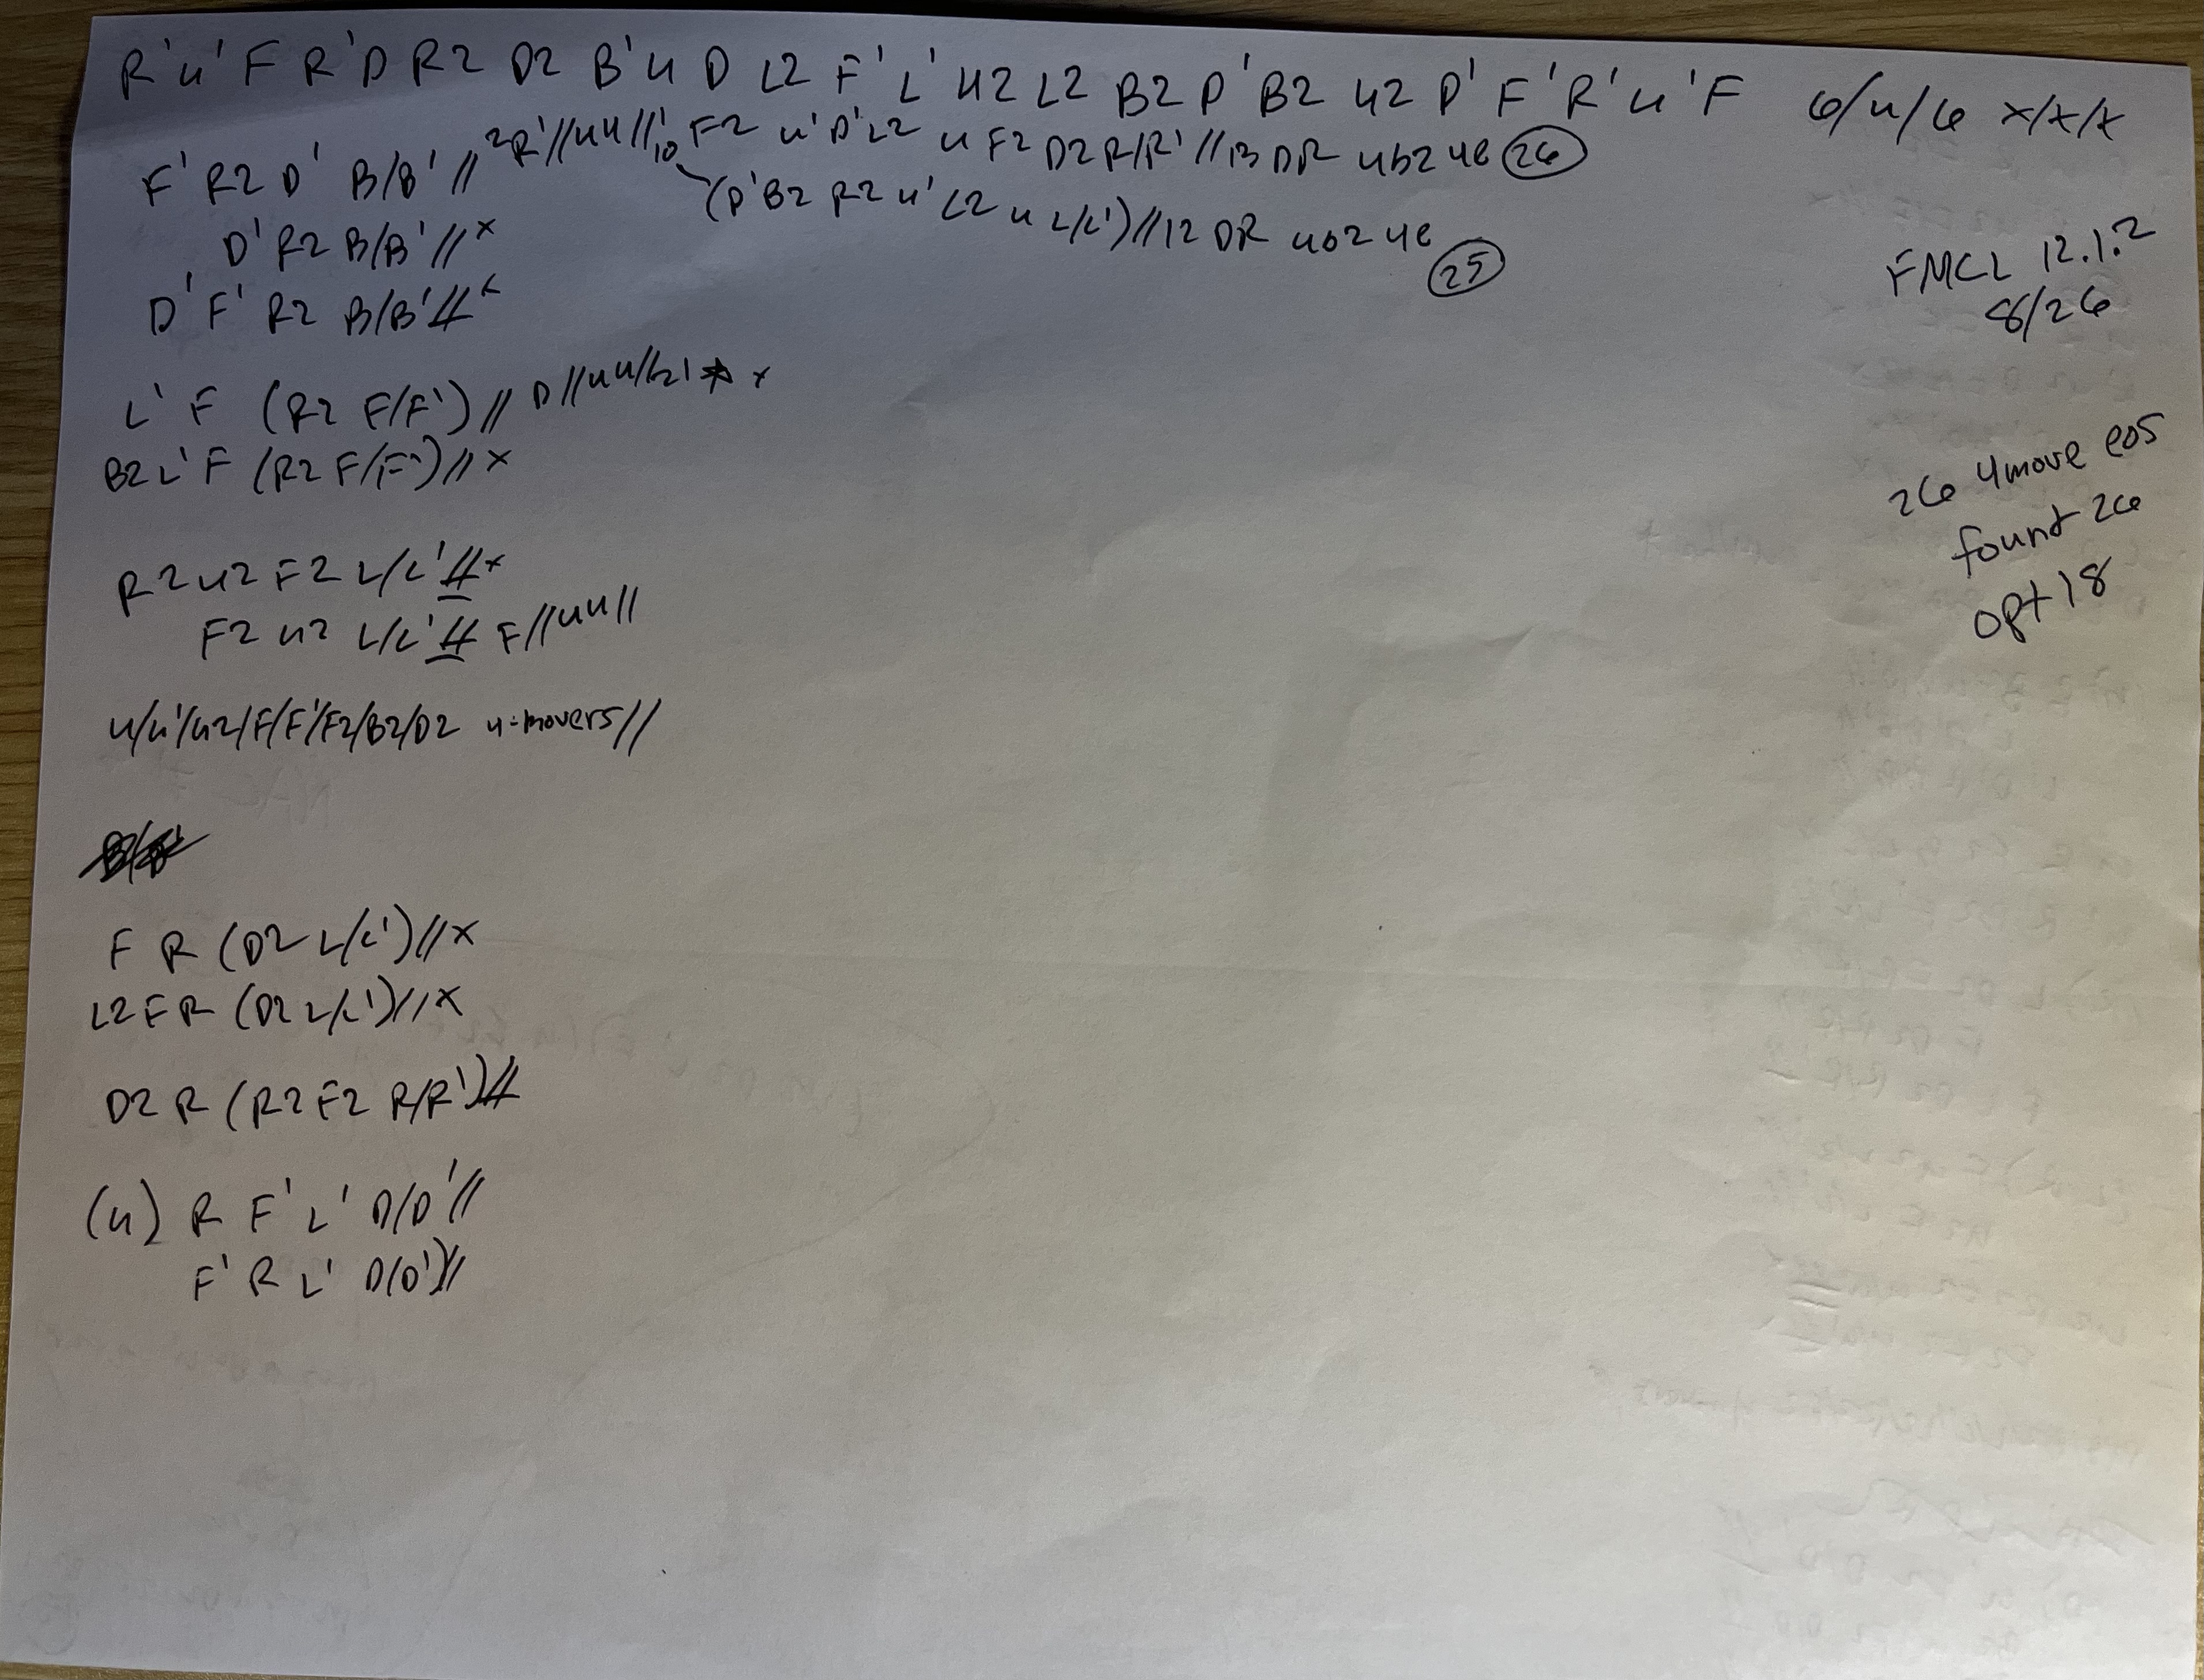 R' u' F R' D R2 D2 B' u D L2 F' L' u2 L2 B2 D' B2 u2 D' F' R' u' F 6/4/6 x/x/x
F' R2 D' B/B' // 2R' // 44 // 10 F2 u' D' L2 u F2 D2 R/R' // 13 DR 4b2 4e 26
(D' B2 R2 u' L2 u L/L') // 12 DR 4b2 4e
25
D' R2 B/B' // x
D' F' R2 B/B' //
FMCL 12.1.2
8/26
L' F (R2 F/F') // D // 44 x
B2 L' F (R2 F/F') // x
26 4move eos
found 26
opt 18
R2 u2 F2 L/L' // x
F2 u2 L/L' // F // 44 //
u/u'/u2/F/F'/F2/B2/D2 4-movers //
F R (D2 L/L') // x
L2 F R (D2 L/L') // x
D2 R (R2 F2 R/R') //
(u) R F' L' D/D' //
F' R L' D(D') //